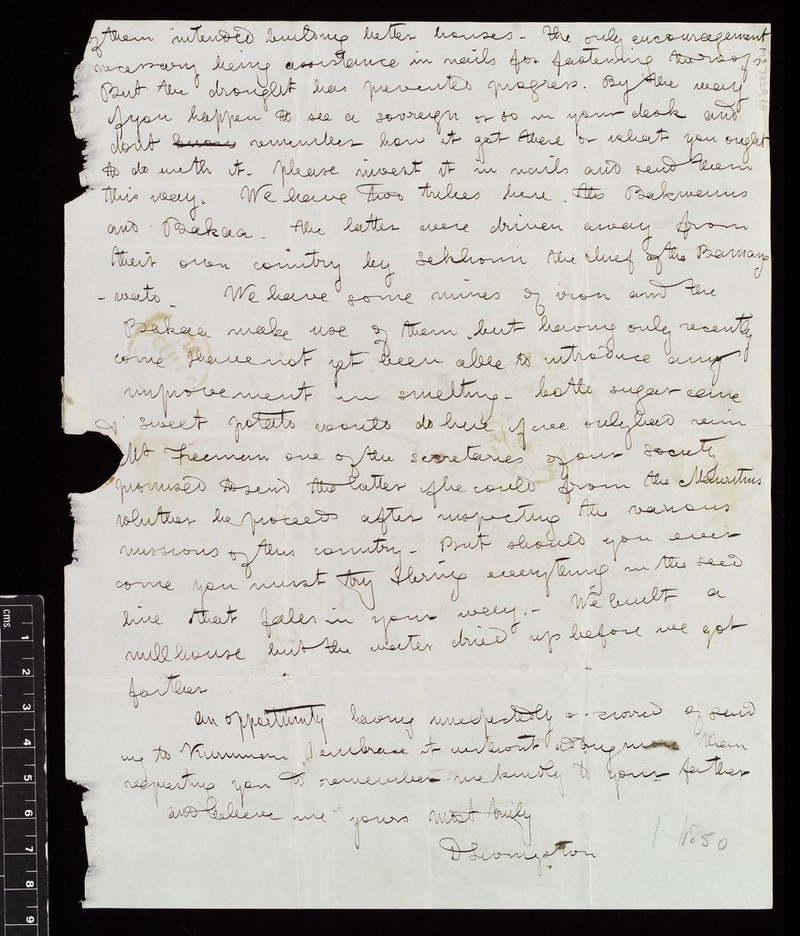 of them intended building better houses - The only encouragement
necessary being assistance in nails for fastening the roofs
But the drought has prevented progress. By the way
if you happen to see a sovreign or so in your desk and
dont know remember how it got there or what you ought
to do with it - please invest it in nails and send them
this way. We have two tribes here - the Bakwenns
and Bakaa - the latter were driven away from
their own country by Sekhomi the chief of the Bamang
- wato - We have some mines of iron and the
Bakaa make use of them, but having only recently
come I have not yet been able to introduce any
improvement in smelting - both sugar cane
& sweet potato would do here if we only had rain
Mr Freeman one of the secretaries of our society
promised to send the latter if he could from the Mauritius
whither he proceeds after inspecting the various
missions of this country - But should you ever
come you must try & bring everything in the seed
line that falls in your way. - We built a
mill house but the water dried up before we got
farther
An opportunity having unexpectedly occurred of send
ing to Kuruman I embrace it without doing more than
requesting you to remember me kindly to your father
and believe me yours most truly
D Livingston
1850